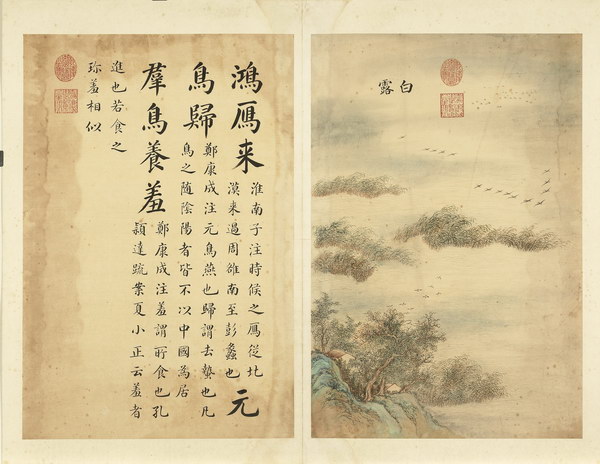 白露
鴻鴈来
淮南子注時候之鴈從北
漠来過周雒南至彭蠡也
元
鳥歸
鄭康成注元鳥燕也歸謂去蟄也凡
鳥之随陰陽者皆不以中國為居
羣鳥養羞
鄭康成注羞謂所食也孔
頴達疏案夏小正云羞者
進也若食之
珎羞相似